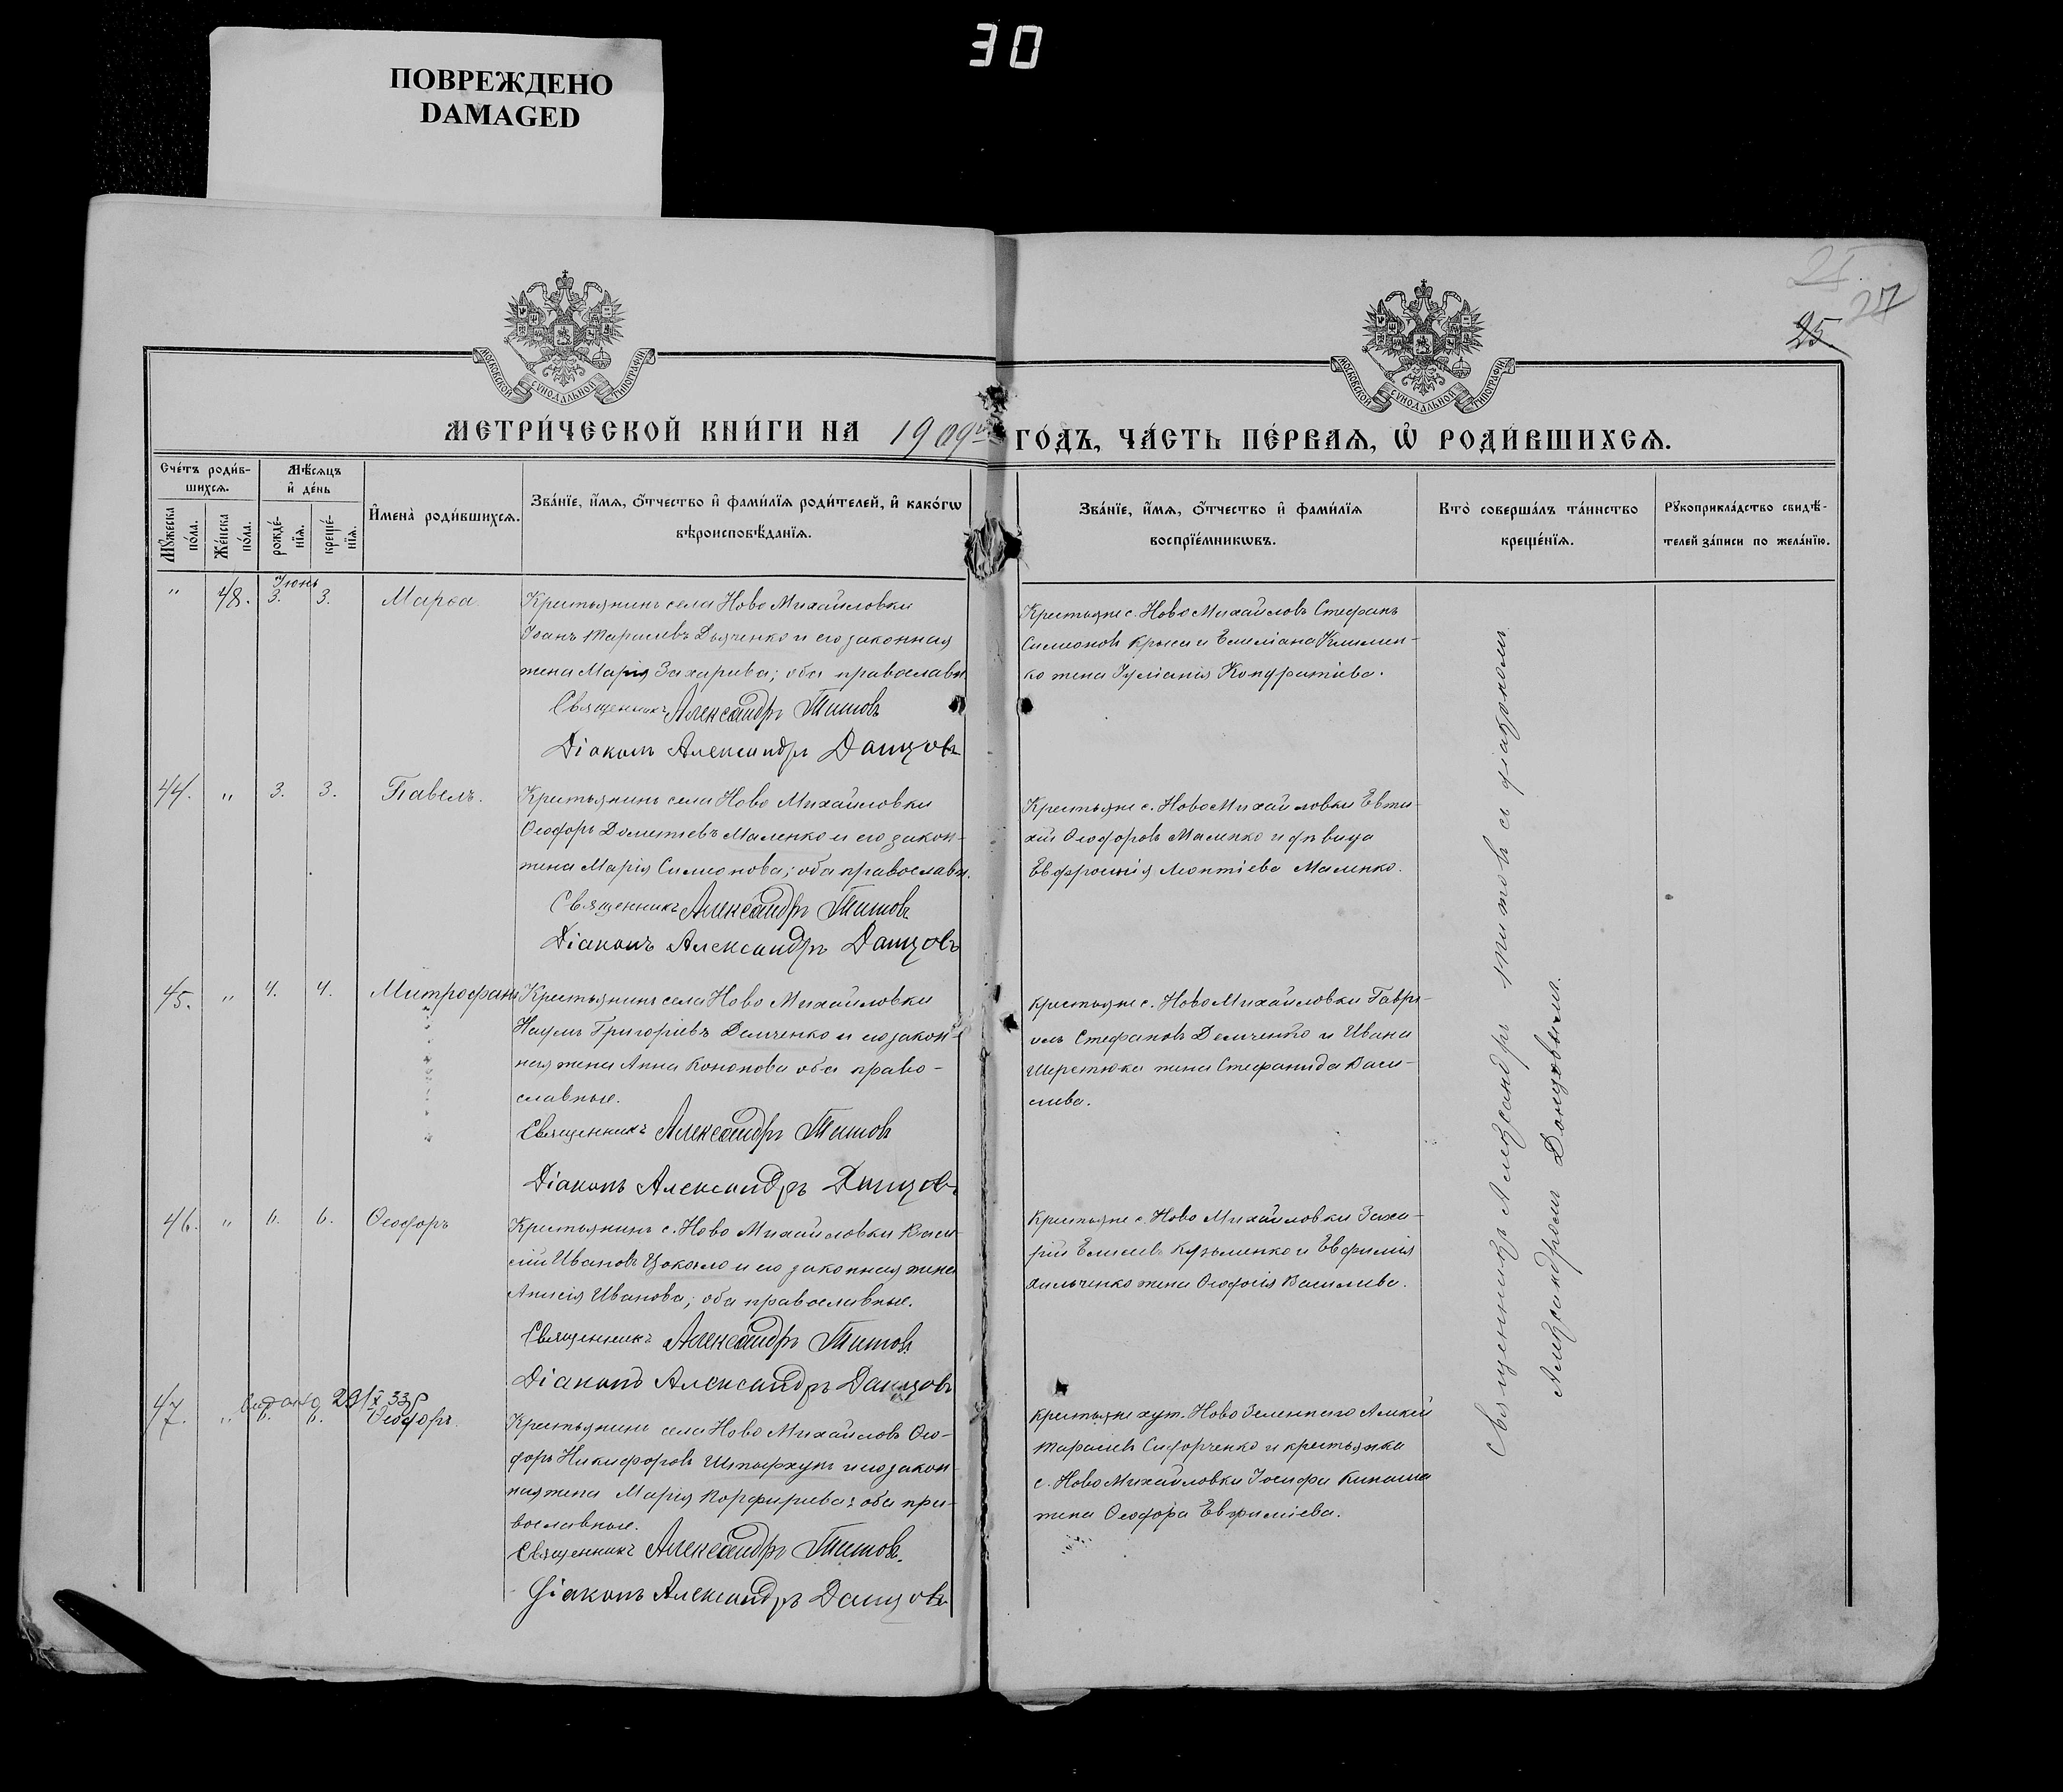 30
ПОВРЕЖДЕНО
DAMAGED
25
27
МОСКОВСКОЙ СѴНОДАЛЬНОЙ ТИПОГРАФІИ
МОСКОВСКОЙ СѴНОДАЛЬНОЙ ТИПОГРАФІИ
МЕТРИ́ЧЕСКОЙ КНИ́ГИ НА 1909 ГО́ДЪ, ЧА́СТЬ ПЕ́РВАѦ, Ѡ҆ РОДИ́ВШИХСѦ.
Сче́тъ роди́вшихсѧ.
Мꙋ́жеска по́ла.
Же́нска по́ла.
Мѣ́сѧцъ и҆ де́нь
рожде́нїѧ.
креще́нїѧ.
И҆мена̀ роди́вшихсѧ.
Зва́нїе, и҆́мѧ, ѻ҆́тчество и҆ фами́лїѧ роди́телей, и҆ како́гѡ
вѣроисповѣ́данїѧ.
Зва́нїе, и҆́мѧ, ѻ҆́тчество и҆ фами́лїѧ
воспрїе́мникѡвъ.
Кто̀ соверша́лъ та́инство
креще́нїѧ.
Рꙋкоприкла́дство свидѣ́-
телей за́писи по жела́нїю.
Іюнь
" 48. 3. 3. Марѳа
Крестьянинъ села Ново Михайловки
Іоанъ Тарасіевъ Дьяченко и его законная
жена Марія Захарьева; оба православн
Священникъ Александръ Титовъ
Діаконъ Александръ Данцовъ
Крестьяне с. Ново Михайловъ Стефанъ
Симеоновъ Крыса и Емиліана Климен-
ко жена Іуліанія Кондратіева.
44. " 3. 3. Павелъ.
Крестьянинъ села Ново Михайловки
Ѳеодоръ Дометіевъ Маленко и его закон-
жена Марія Симеонова; оба православн.
Священникъ Александръ Титовъ
Діаконъ Александръ Данцовъ
Крестьяне с. Ново Михайловки Евти-
хій Ѳеодоровъ Маленко и дѣвица
Евфросинія Леонтіева Маленко.
45. " 4. 4. Митрофанъ
Крестьянинъ села Ново Михайловки
Наумъ Григоріевъ Демченко и его закон-
ная жена Анна Кононова оба право-
славные.
Священникъ Александръ Титовъ
Діаконъ Александръ Данцовъ
Крестьяне с. Ново Михайловки Гаврі-
илъ Стефановъ Демченко и Ивана
Шерстюка жена Стефанида Васи-
лева.
46. " 6. 6. Ѳеодоръ
Крестьянинъ с. Ново Михайловки Васи-
лій Ивановъ Цокало и его законная жена
Анисія Иванова; оба православные.
Священникъ Александръ Титовъ
Діаконъ Александръ Данцовъ
Крестьяне с. Ново Михайловки Заха-
рій Елисіевъ Кузьменко и Евфимія
Хильченко жена Ѳеодосія Васильева.
Выдано 29/X 33р
47. " 6. 6. Ѳеодоръ.
Крестьянинъ села Ново Михайловъ Ѳео-
доръ Никифоровъ и его закон-
ная жена Марія Порфирьева; оба пра-
вославные.
Священникъ Александръ Титовъ.
Діаконъ Александръ Данцовъ
Крестьяне хут. Ново Зеленаго Алексій
Тарасіевъ Сидорченко и крестьянка
с. Ново Михайловки Іосифа
жена Ѳеодора Евфиміева.
Священникъ Александръ Титовъ съ діакономъ
Александромъ Данцовымъ.